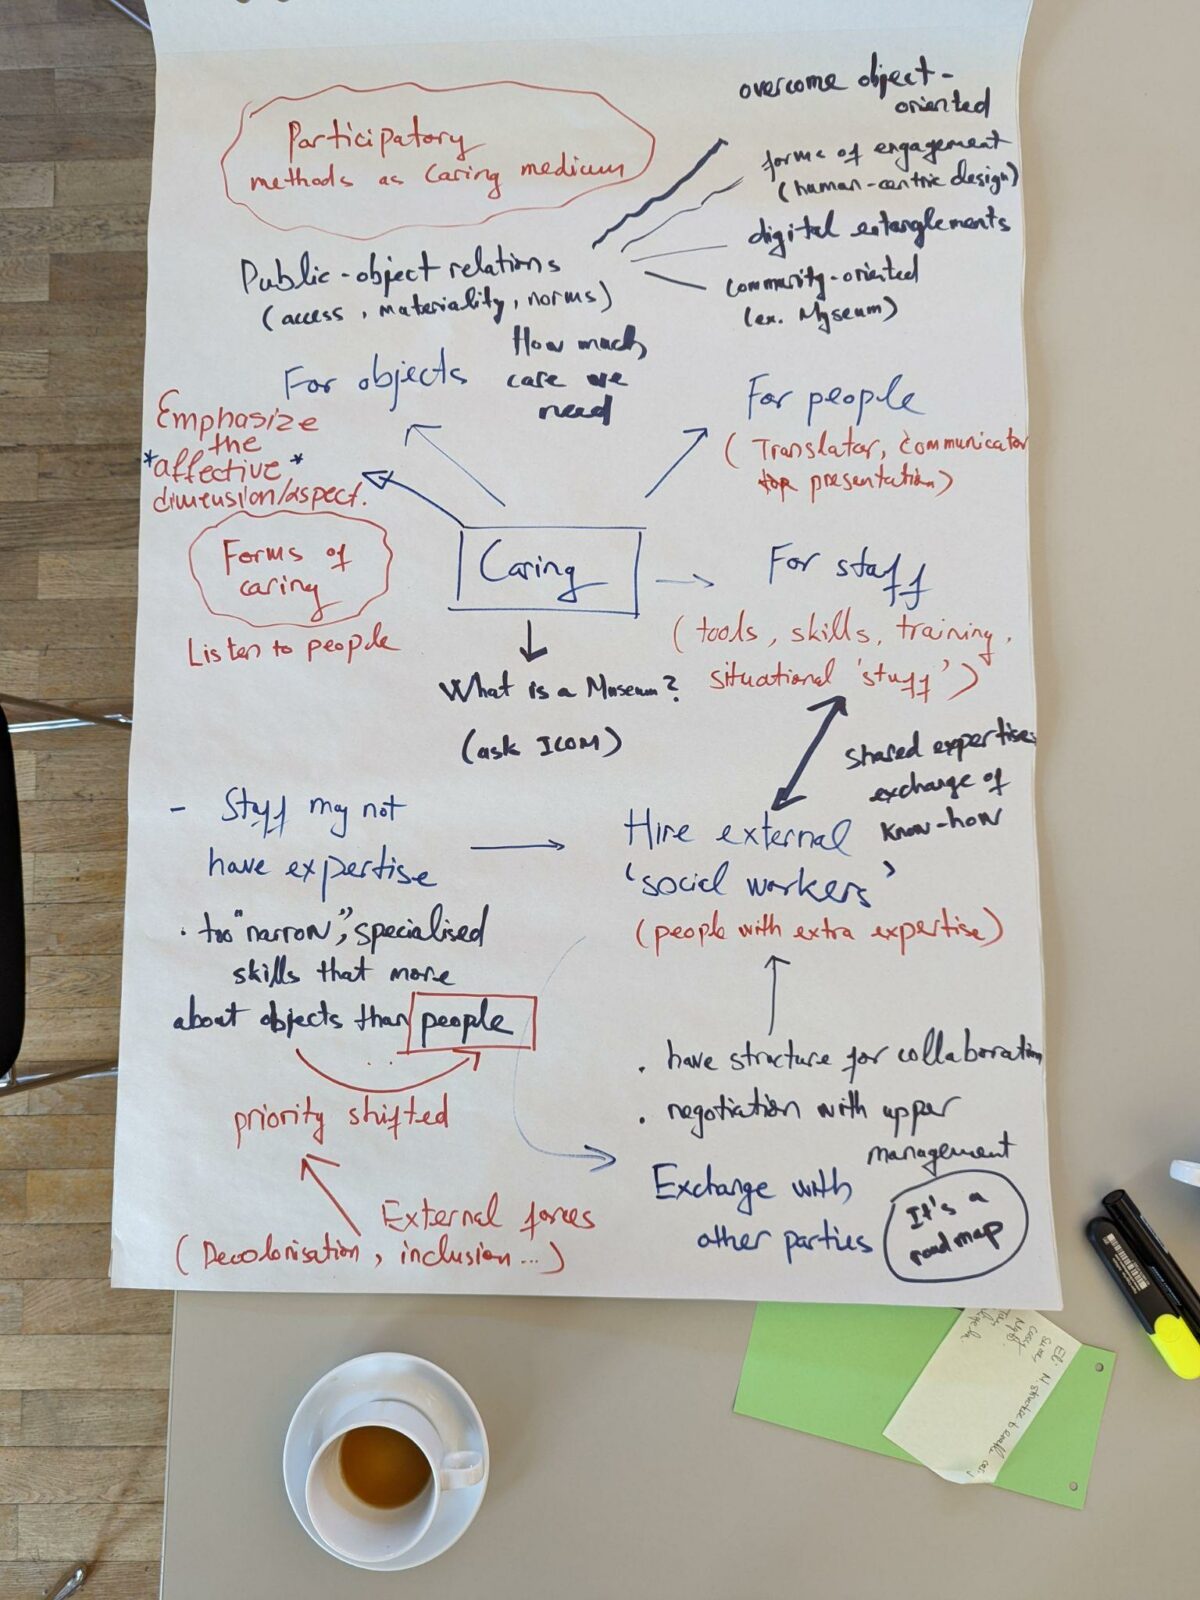 Participatory
methods as caring medium
overcome object-
oriented
forms of engagement
(human-centric design)
digital entanglements
community-oriented
(ex. Myseum)
Public-object relations
(access, materiality, norms)
How much
care we
need
For objects
For people
(Translator, communicator
presentation)
Emphasize
the
*affective*
dimension/aspect.
Forms of
caring
Listen to people
Caring
For staff
(tools, skills, training,
situational 'stuff')
What is a Museum?
(ask ICOM)
shared expertise
exchange of
know-how
- Staff may not
have expertise
Hire external
'social workers'
(people with extra expertise)
. too "narrow", specialised
skills that more
about objects than people
priority shifted
External forces
(Decolonisation, inclusion...)
. have structure for collaboration
. negotiation with upper
management
Exchange with
other parties
It's a
roadmap